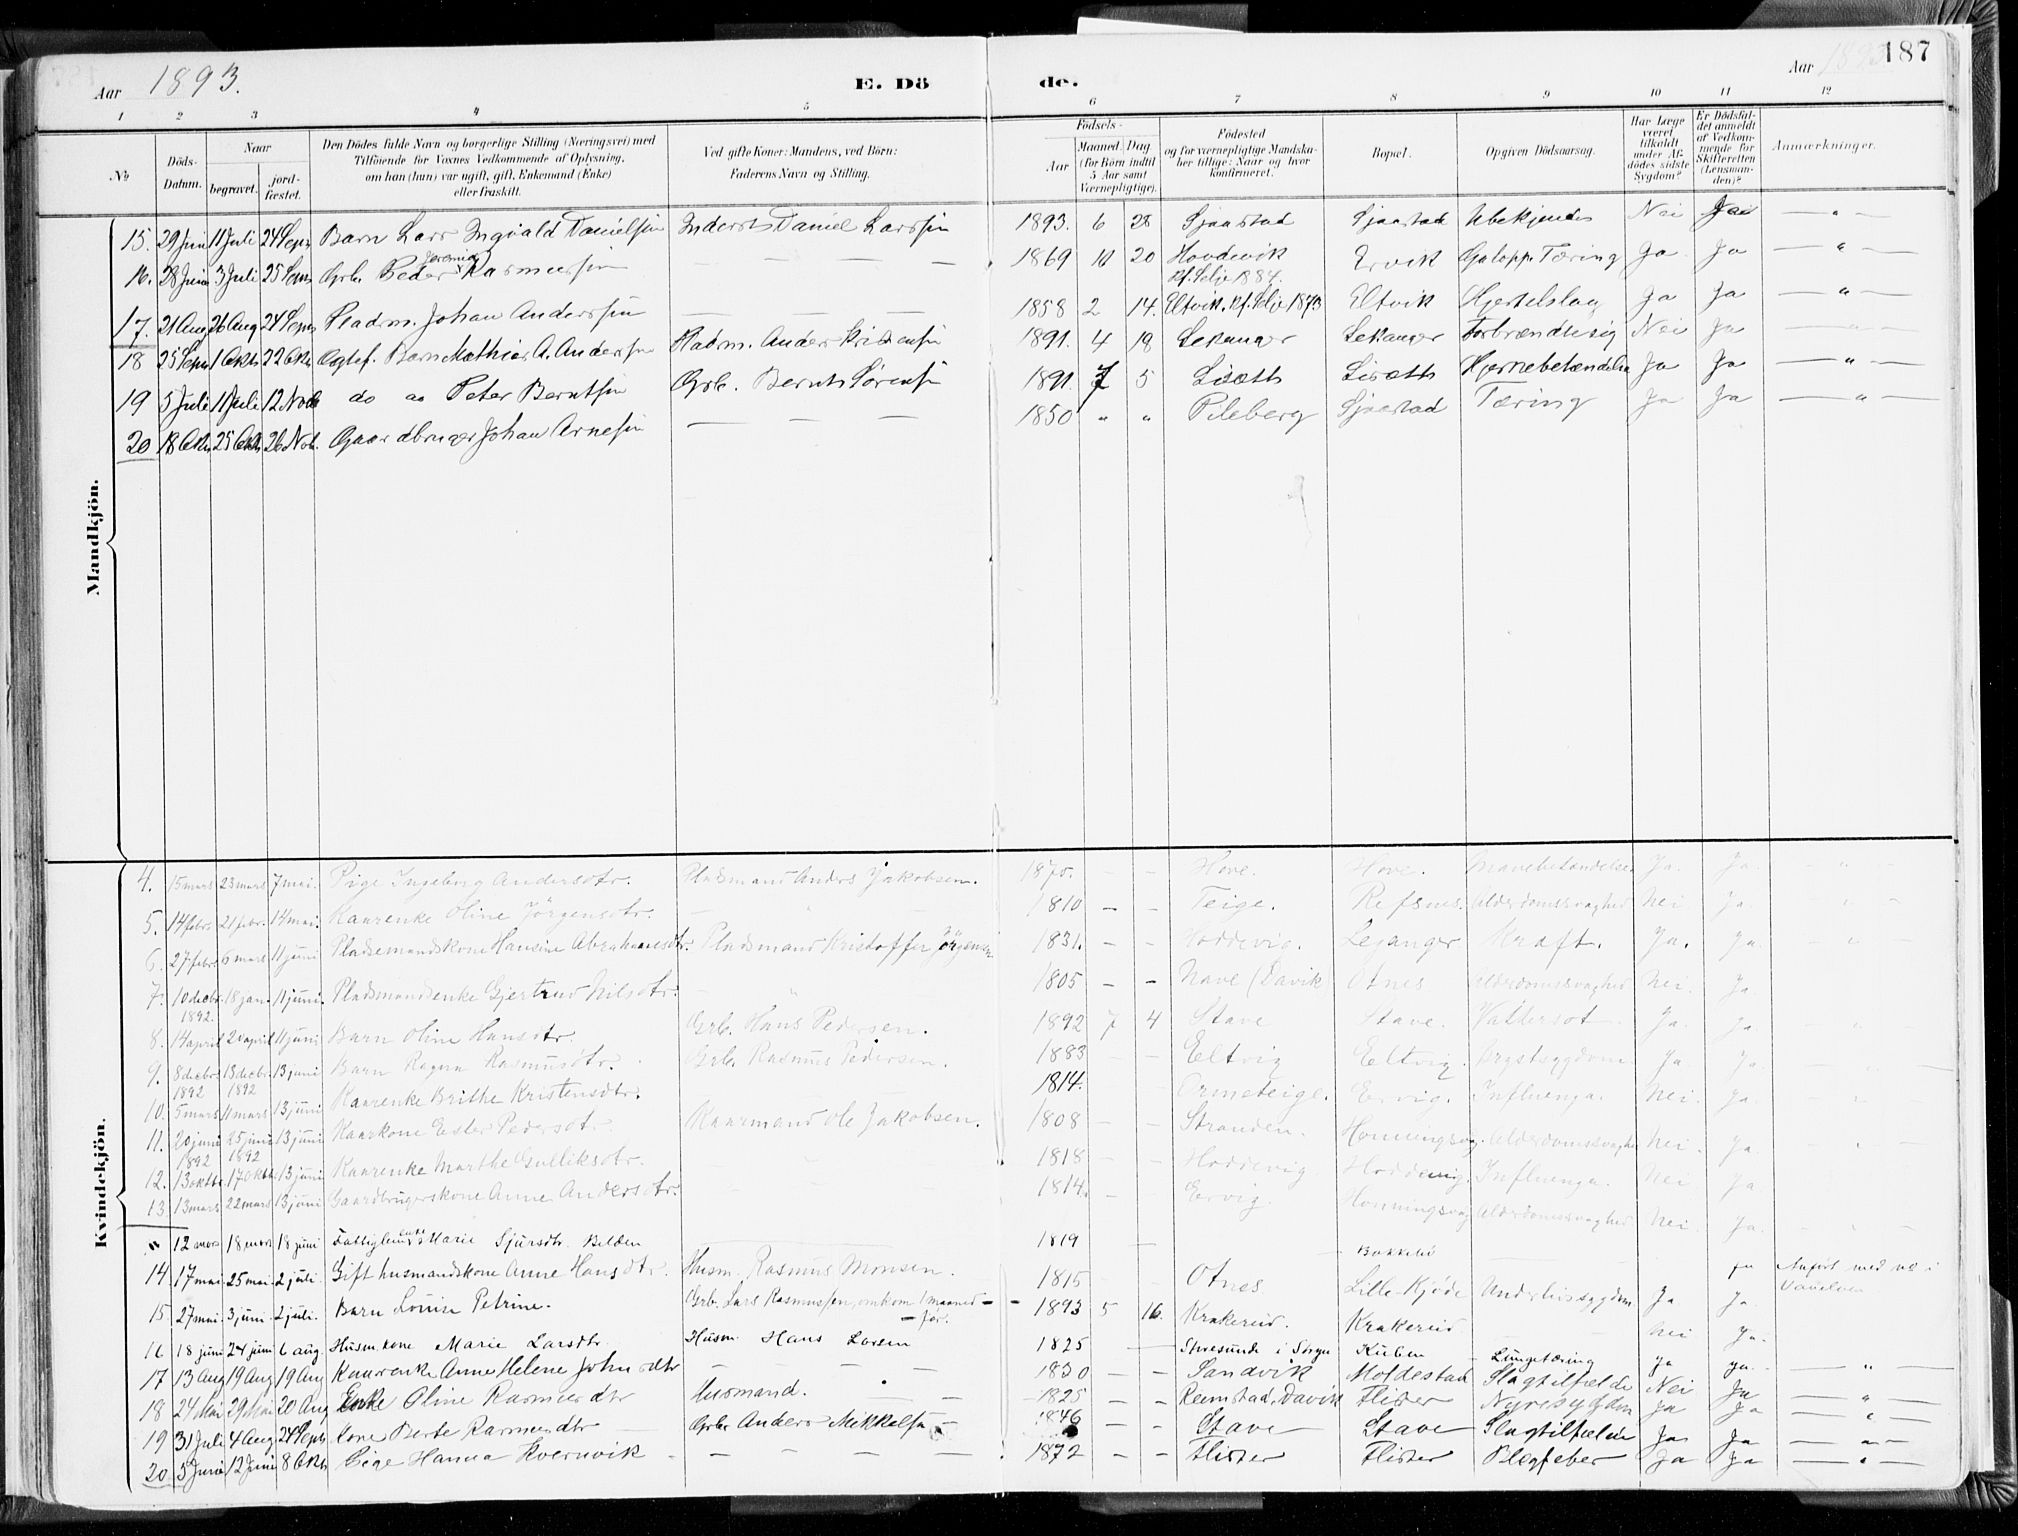 Aar 1893.
E. Dö
de.
Aar 1893
187
1 2 3 4 5 6 7 8 9 10 11 12
No
Döds-Datum.
Naar
begravet.
jord-fæstet.
Den Dödes fulde Navn og borgerlige Stilling (Næringsvei) med
Tilföiende for Voxnes Vedkommende af Oplysning,
om han (hun) var ugift, gift, Enkemand (Enke)
eller fraskilt.
Ved gifte Koner: Mandens, ved Börn:
Faderens Navn og Stilling.
Födsels-
Aar
Maaned. Dag
(for Börn indtil
5 Aar samt
Værnepligtige).
Födested
og for værnepligtige Mandska-
ber tillige: Naar og hvor
konfirmeret.
Bopæl.
Opgiven Dödsaarsag.
Har Læge
været
tilkaldt
under Af-
dödes sidste
Sygdom?
Er Dödsfal-
det anmeldt
af Vedkom-
mende for
Skifteretten
(Lensman-
den)?
Anmærkninger.
Mandkjön.
15. 29 Juni 11 Juli 24 Sept Barn Lars Ingvald Danielsen Daniel Larssen 1893. 6 28 Sjaastad Sjaastad Ubekjendt Nei Ja — " —
16. 28 Juni 3 Juli 25 Sept Grb. Peder Rasmussen — — — — 1869 10 20 Hovdevik Ervik Galopp. Tæring Ja Ja — " —
Kf. Selje 1884.
17 21 Aug 26 Aug 24 Sept Pladsm. Johan Anderssen — — — 1858 2 14. Eltvik. Kf. Selje 1873 Eltvik Hjerteslag Ja Ja — " —
18 25 Sept 1 Okt 22 Okt Ægtef. Barn Mathias A. Anderssen Pladsm. Anders Kristensen 1891. 4 19 Lekanger Lekanger Forbrændte sig Nei Ja — " —
19 5 Juli 11 Juli 12 Nov do do Peter Berntsen Grb. Bernt Sørensen 1891. 7 5 Lisæth Lisæth Hjernebetændelse Ja Ja — " —
20 18 Okt 25 Okt 26 Nov. Gaardbruger Johan Arnesen — — — 1850 " " Pileberg Sjaastad Tæring Ja Ja — " —
Kvindekjön.
4. 15 mars 23 mars 7 mai. Pige Ingeborg Andersdtr. Pladsmand Anders Jakobsen. 1870. – – Hove. Hove. Mavebetændelse Ja. Ja. – " –
5. 14 febr. 21 febr. 14 mai. Kaarenke Oline Jörgensdtr. — " — 1810 – – Teige. Refsnes. Alderdomssvaghed Nei Ja – " –
6. 27 febr. 6 mars 11 juni Pladsemandskone Hansine Abrahamsdtr. Pladsmand Kristoffer Jörgensen 1831. – – Hoddevig. Leganger Kræft. Ja. Ja. – " –
7. 10 decbr. 1892. 18 jan. 11 juni. Pladsmandsenke Gjertrud Nilsdtr. — " 1805 – – Nave (Davik) Otnes Alderdomssvaghed Nei. Ja.
8. 14 april 20 april 11 juni Barn Oline Hansdtr. Grb. Hans Pedersen. 1892 7 4 Stave Stave. Vattersot Ja Ja "
9. 8 decbr. 1892 13 decbr. 1892 13 juni Barn Ragna Rasmusdtr. Grb. Rasmus Pedersen. 1883 – – Eeltvig Eeltvig. Brystsygdom Ja Ja
10. 5 mars 11 mars 13 juni Kaarenke Brithe Kristensdtr. 1814. Ormeteige. Ervig. Influenza. Nei. Ja.
11. 20 juni 1892 25 juni 1892 13 juni Kaarkone Ester Pedersdtr. Kaarmand Ole Jakobsen. 1808 – – Stranden. Honningsvog. Alderdomssvaghed Nei. Ja
12. 13 oktbr. 17 oktbr. 13 juni Kaarenke Marthe Gulliksdtr. — 1818 – – Hoddevig Hoddevig. Influenza. Nei Ja
13. 13 mars 22 mars 13 juni Gaardbrugerskone Anne Andersdtr. — 1814. – – Ervig. Honningsvog Alderdomssvaghed Nei. Ja. – " –
" 12 mars 18 mars 18 juni Marie Sjursdtr. 1819 — — Ja Anført med No i
14. 17 mai 25 mai 2 juli. Gift husmandskone Anne Hansdtr. Husm. Rasmus Monsen. 1815 – – Otnes Lille-Kjøde Underlivssygdom Ja Ja
15. 27 mai. 3 juni. 2 juli. Barn Louise Petrine. Grb. Lars Rasmussen, omkom 1 maaned för. 1893 5 16. Krakereid. Krakereid — Nei Ja.
16 18 juni 24 juni 6 aug. Husm. kone Marie Larsdtr. Husm. Hans Larsen 1825 — Kulien Lungetæring Ja Ja.
17 13 Aug 19 Aug 19 Aug Kaarenke Anne Helene Johnsdtr — — — 1830 – – Sandvik Moldestad Slagtilfælde Nei Ja — " —
18 24 Mai 29 Mai 20 Aug Enke Oline Rasmusdtr Husmand. 1825 – – Reimstad. Davik Flister Nyresygdom Ja Ja — " —
19 31 Juli 4 Aug 24 Sept Kone Berte Rasmusdtr Grb. Anders Mikkelsen 1846 – – Stave Stave Slagtilfælde Ja Ja — " —
20 5 Juni 12 Juni 8 Okt Pige Hanna Kvernvik — — — 1872 – – Flister Flister Blegfeber Ja Ja — " —